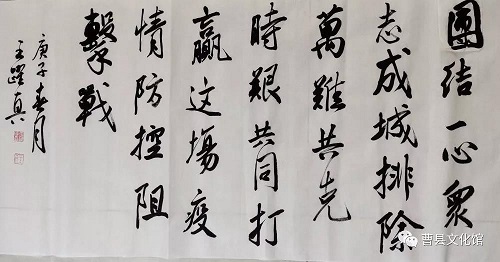 團结一心眾
志成城排除
萬難共克
時艱共同打
贏这場疫
情防控阻
擊戰
庚子春月
王躍真
曹县文化馆